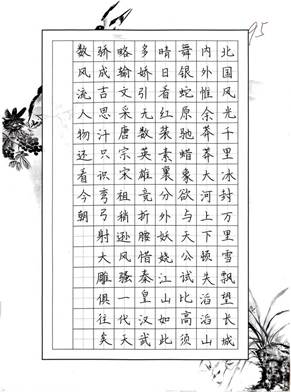 95
北国风光千里冰封万里雪飘望长城
内外惟余莽莽大河上下顿失滔滔山
舞银蛇原驰蜡象欲与天公试比高须
晴日看红装素裹分外妖娆江山如此
多娇引无数英雄竞折腰惜秦皇汉武
略输文采唐宗宋祖稍逊风骚一代天
骄成吉思汗只识弯弓射大雕俱往矣
数风流人物还看今朝